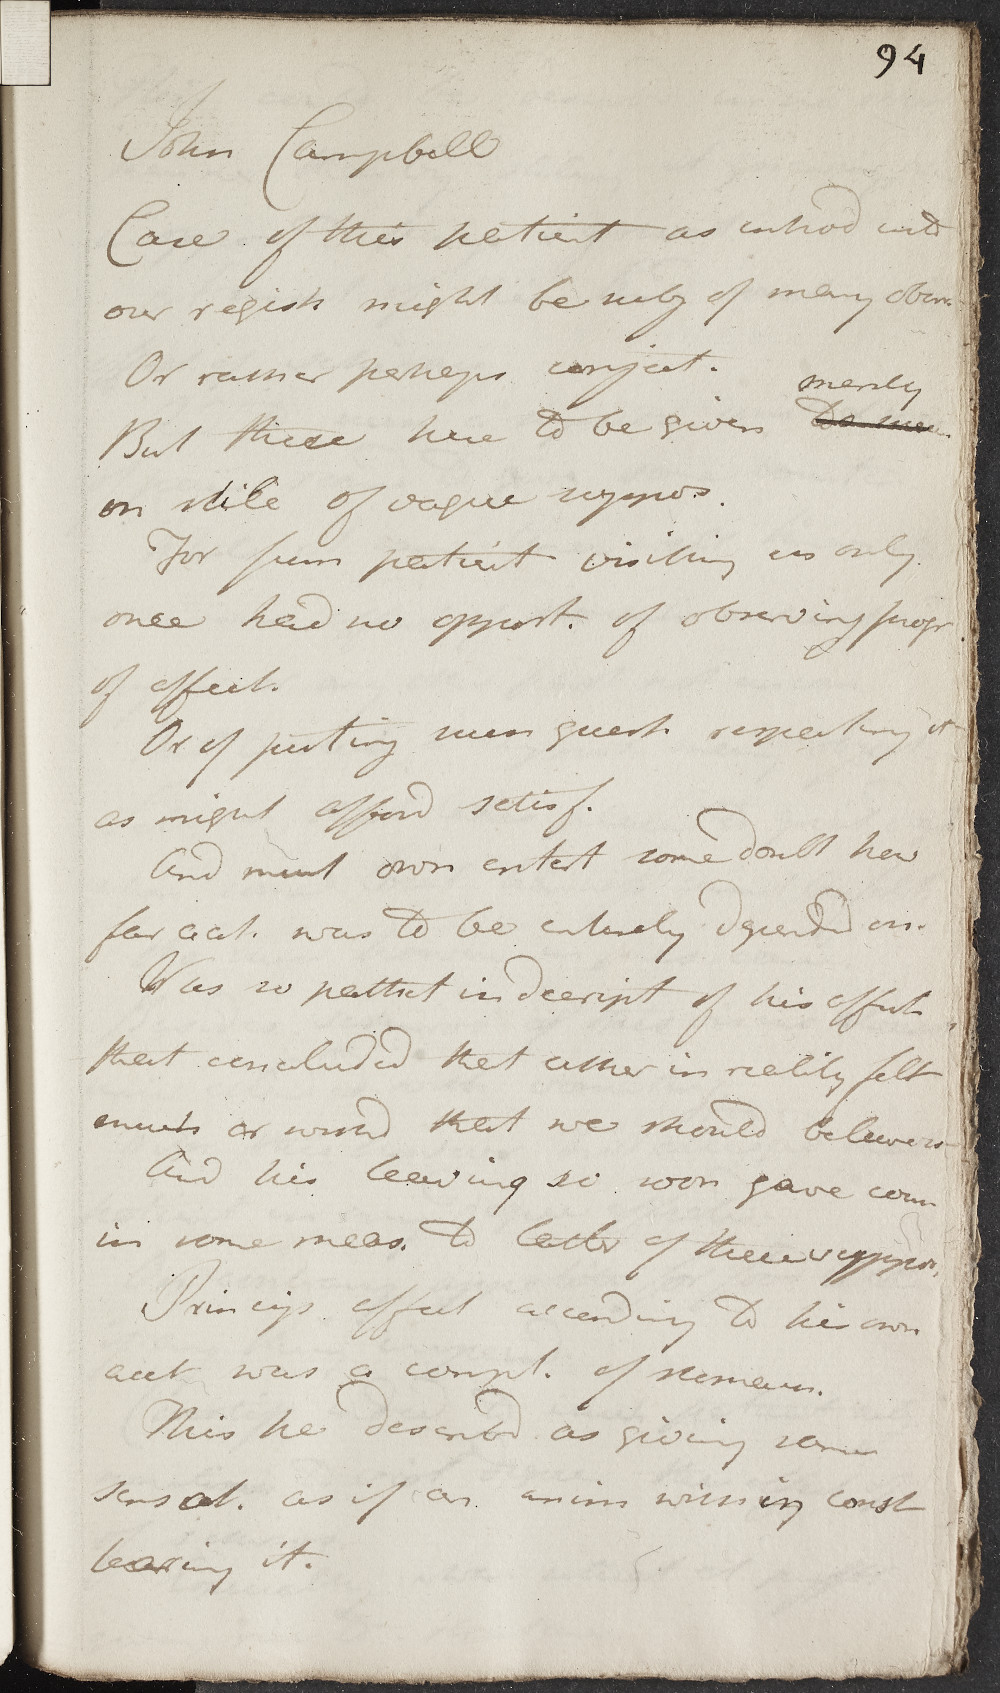 94
John Campbell
Case of this patient as introd into
our regist might be subj of many observ
Or rather perhaps conject.
merely
But these here to be given
on stile of vague suppos.
For from patient visiting us only
once had no opport. of observing progr
of affect.
Or of putting such quest. respecting it
as might afford satisf.
And must own entert some doubt how
far acct. was to be entirely depended on.
Was so pathet in descript of his affect
that concluded that either in reality felt
much or wishd that we should believe so
And his leaving so soon gave coun
in some meas. to latter of these suppos.
Princip. affect according to his own
acct was a compt. of stomach.
This he describd as giving same
sensat. as if an anim within const
tearing it.